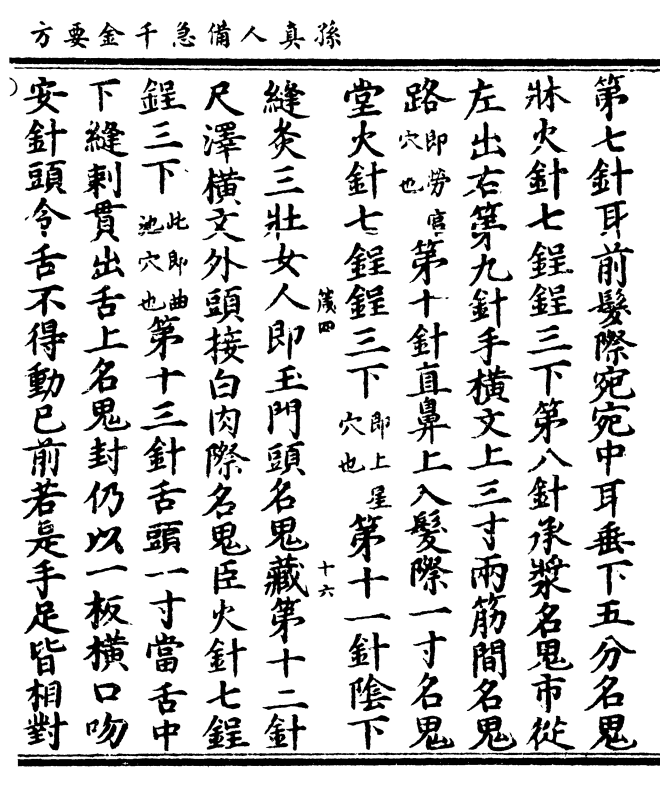 孫真人備急千金要方
第七針耳前髮際宛宛中耳垂下五分名鬼
牀火針七鋥鋥三下第八針承漿名鬼市從
左出右第九針手橫文上三寸兩筋間名鬼
路即勞宮穴也第十針直鼻上入髮際一寸名鬼
堂火針七鋥鋥三下即上星穴也第十一針陰下
縫灸三壯女人即玉門頭名鬼藏第十二針
尺澤橫文外頭接白肉際名鬼臣火針七鋥
鋥三下此即曲池穴也第十三針舌頭一寸當舌中
下縫刺貫出舌上名鬼封仍以一板橫口吻
安針頭令舌不得動已前若是手足皆相對
箴四
十六